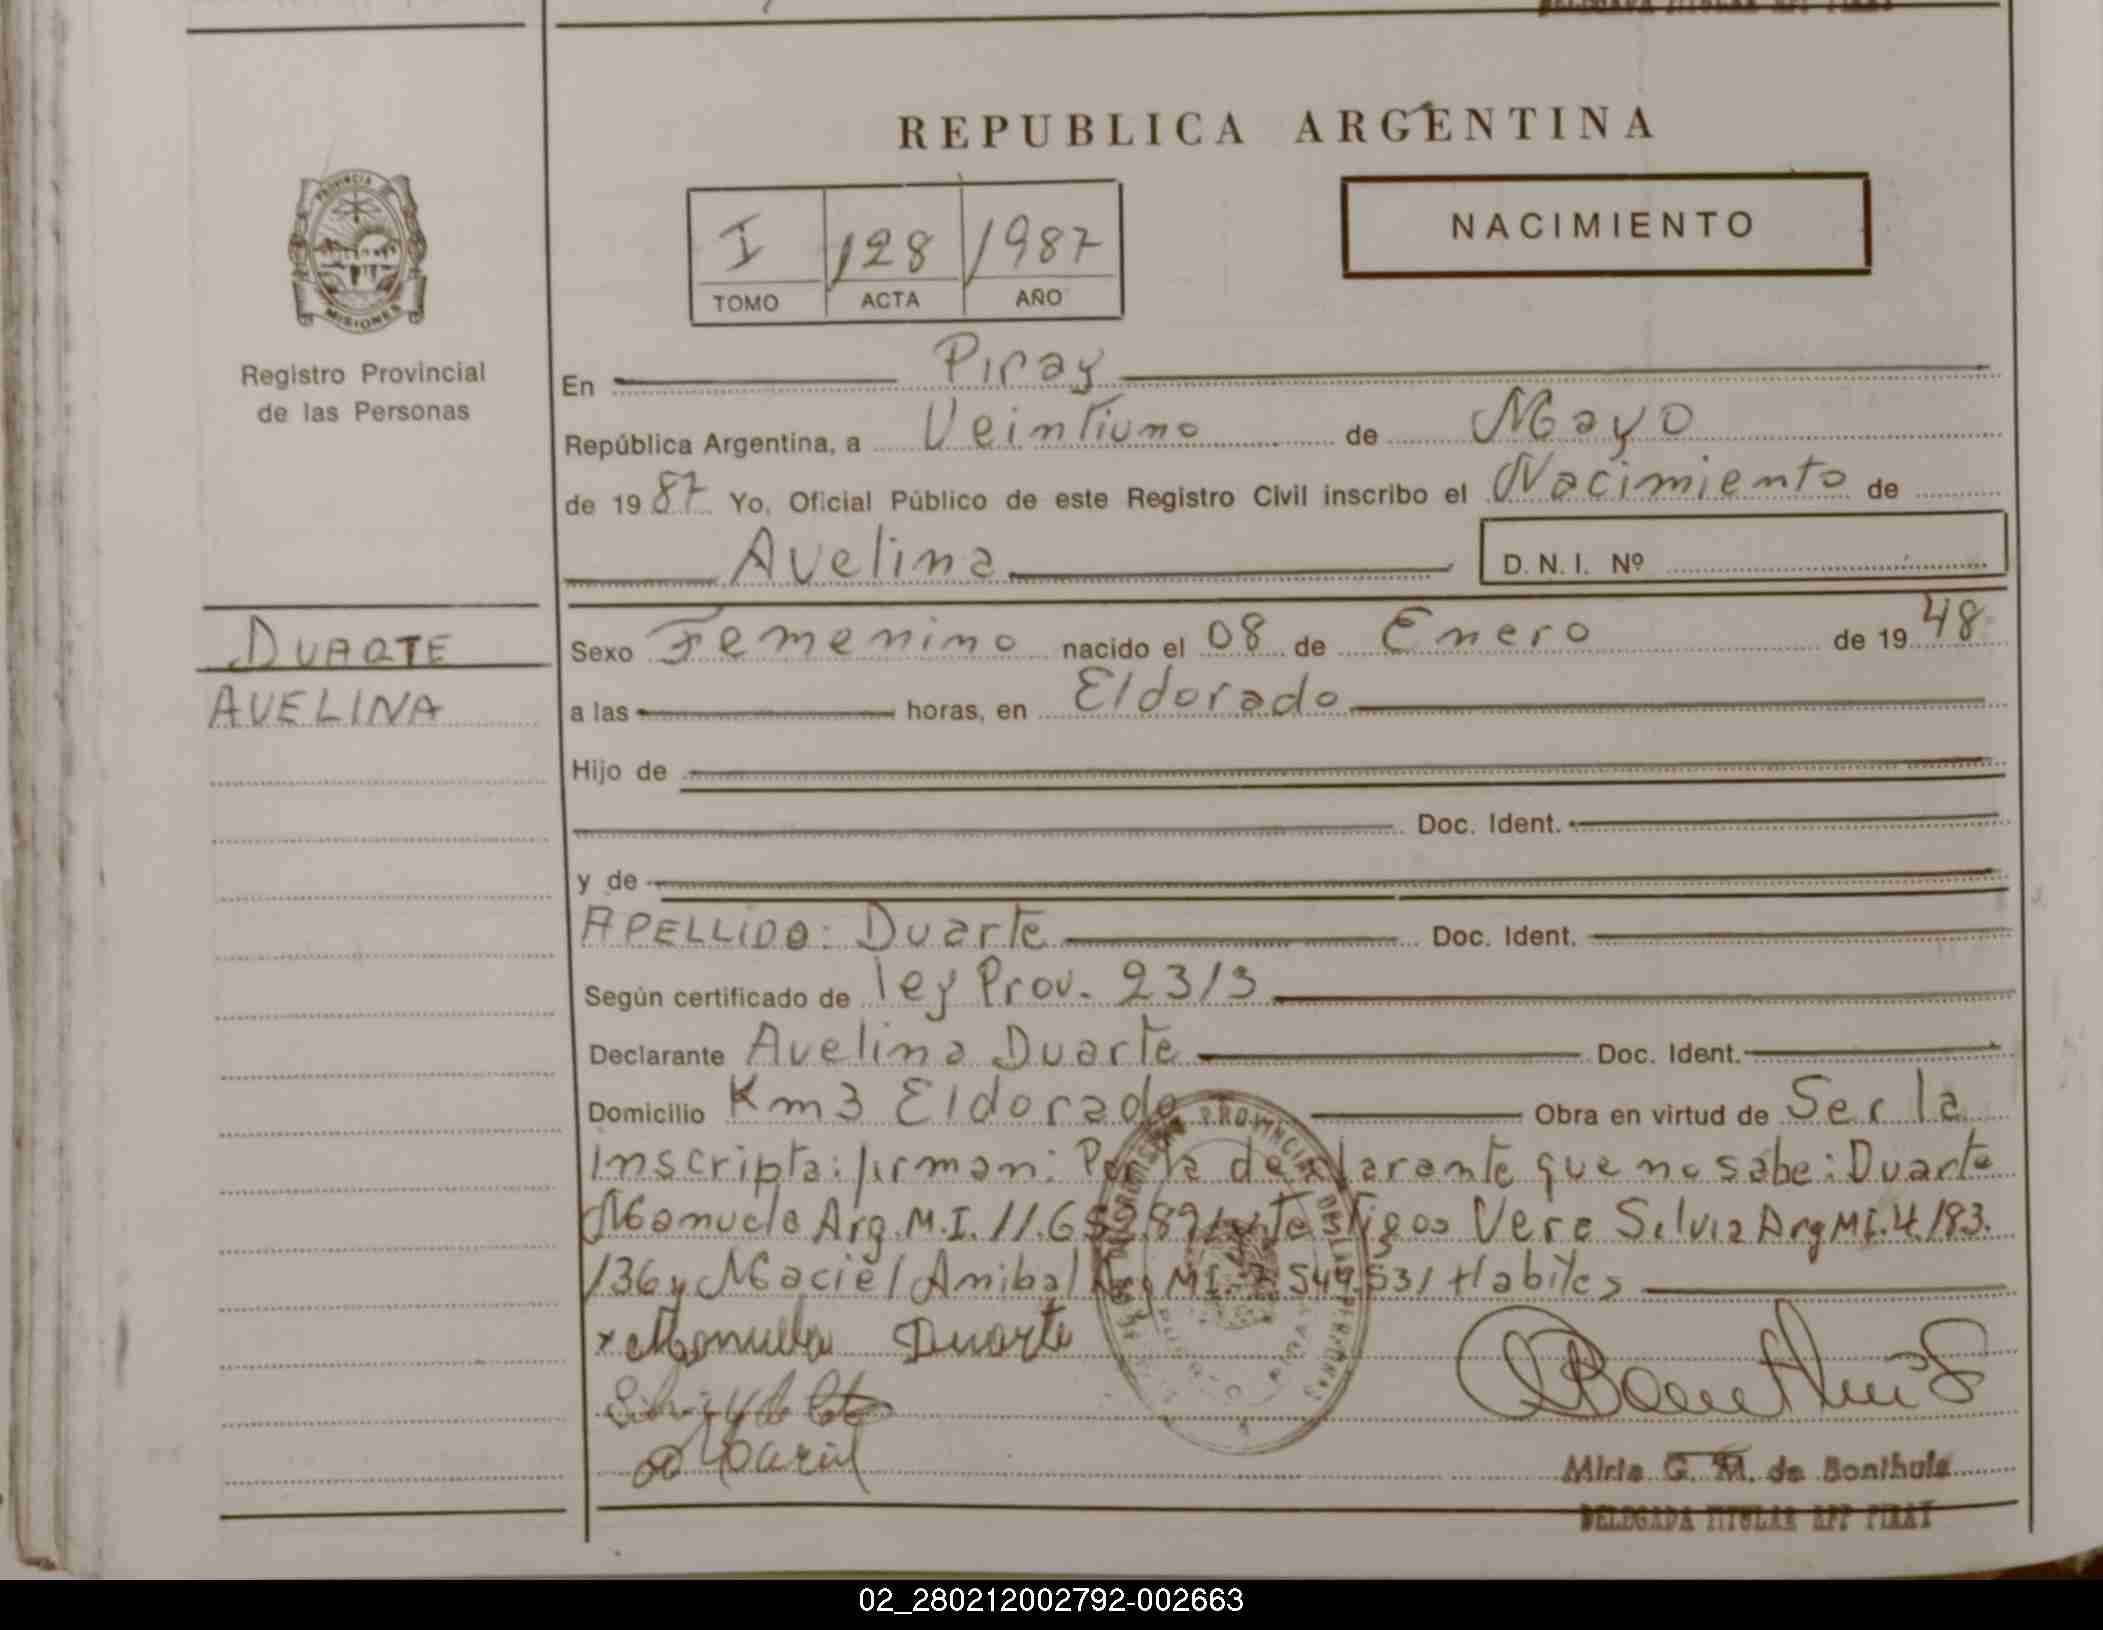 REPUBLICA ARGENTINA
NACIMIENTO
I 128 1987
TOMO ACTA AÑO
PROVINCIA
MISIONES
Registro Provincial
de las Personas
En Piray
República Argentina, a Veintiuno de Mayo
de 19 87 Yo, Oficial Público de este Registro Civil inscribo el Nacimiento de
Avelina D. N. I. Nº
DUARTE
AVELINA
Sexo Femenino nacido el 08 de Enero de 19 48
a las horas, en Eldorado
Hijo de
Doc. Ident.
y de
APELLIDO: Duarte Doc. Ident.
Según certificado de ley Prov. 2313
Declarante Avelina Duarte Doc. Ident.
Domicilio Km3 Eldorado Obra en virtud de Ser la
Inscripta: firman: Por la declarante que no sabe: Duarte
Manuela Arg. M.I. 11.659.891 y Testigos Vera Silvia Arg MI. 4.183.
136 y Maciel Anibal Arg MI. 7.549.531 Habiles
x Manuela Duarte
Mirta G. M. de Bonthuis
DELEGADA TITULAR RPP PIRAY
02_280212002792-002663